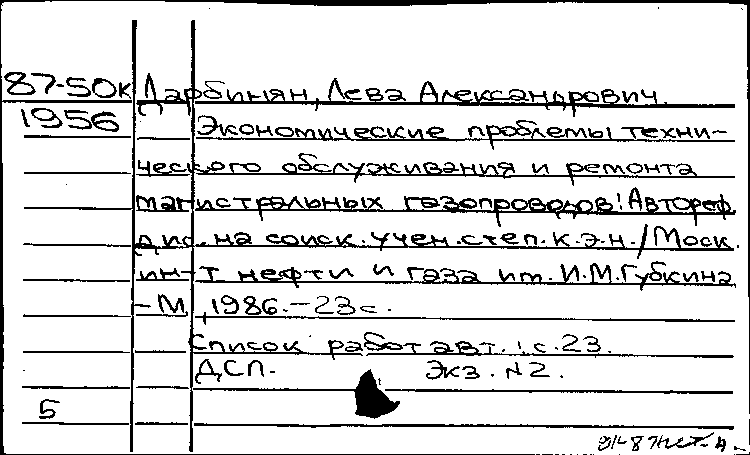 87-50к Дарбинян, Лева Александрович.
1956 Экономические проблемы техни-
ческого обслуживания и ремонта
магистральных газопроводов: Автореф.
дис. на соиск. учен. степ. к.э.н. / Моск.
ин-т нефти и газа им. И.М.Губкина
-М., 1986.-23с.
Список работ авт.: с.23.
ДСП. Экз. №2.
5